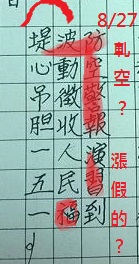 8/27
軋空？漲假的？
防空警報演習到
波動徵收人民福
堤心吊胆一五一